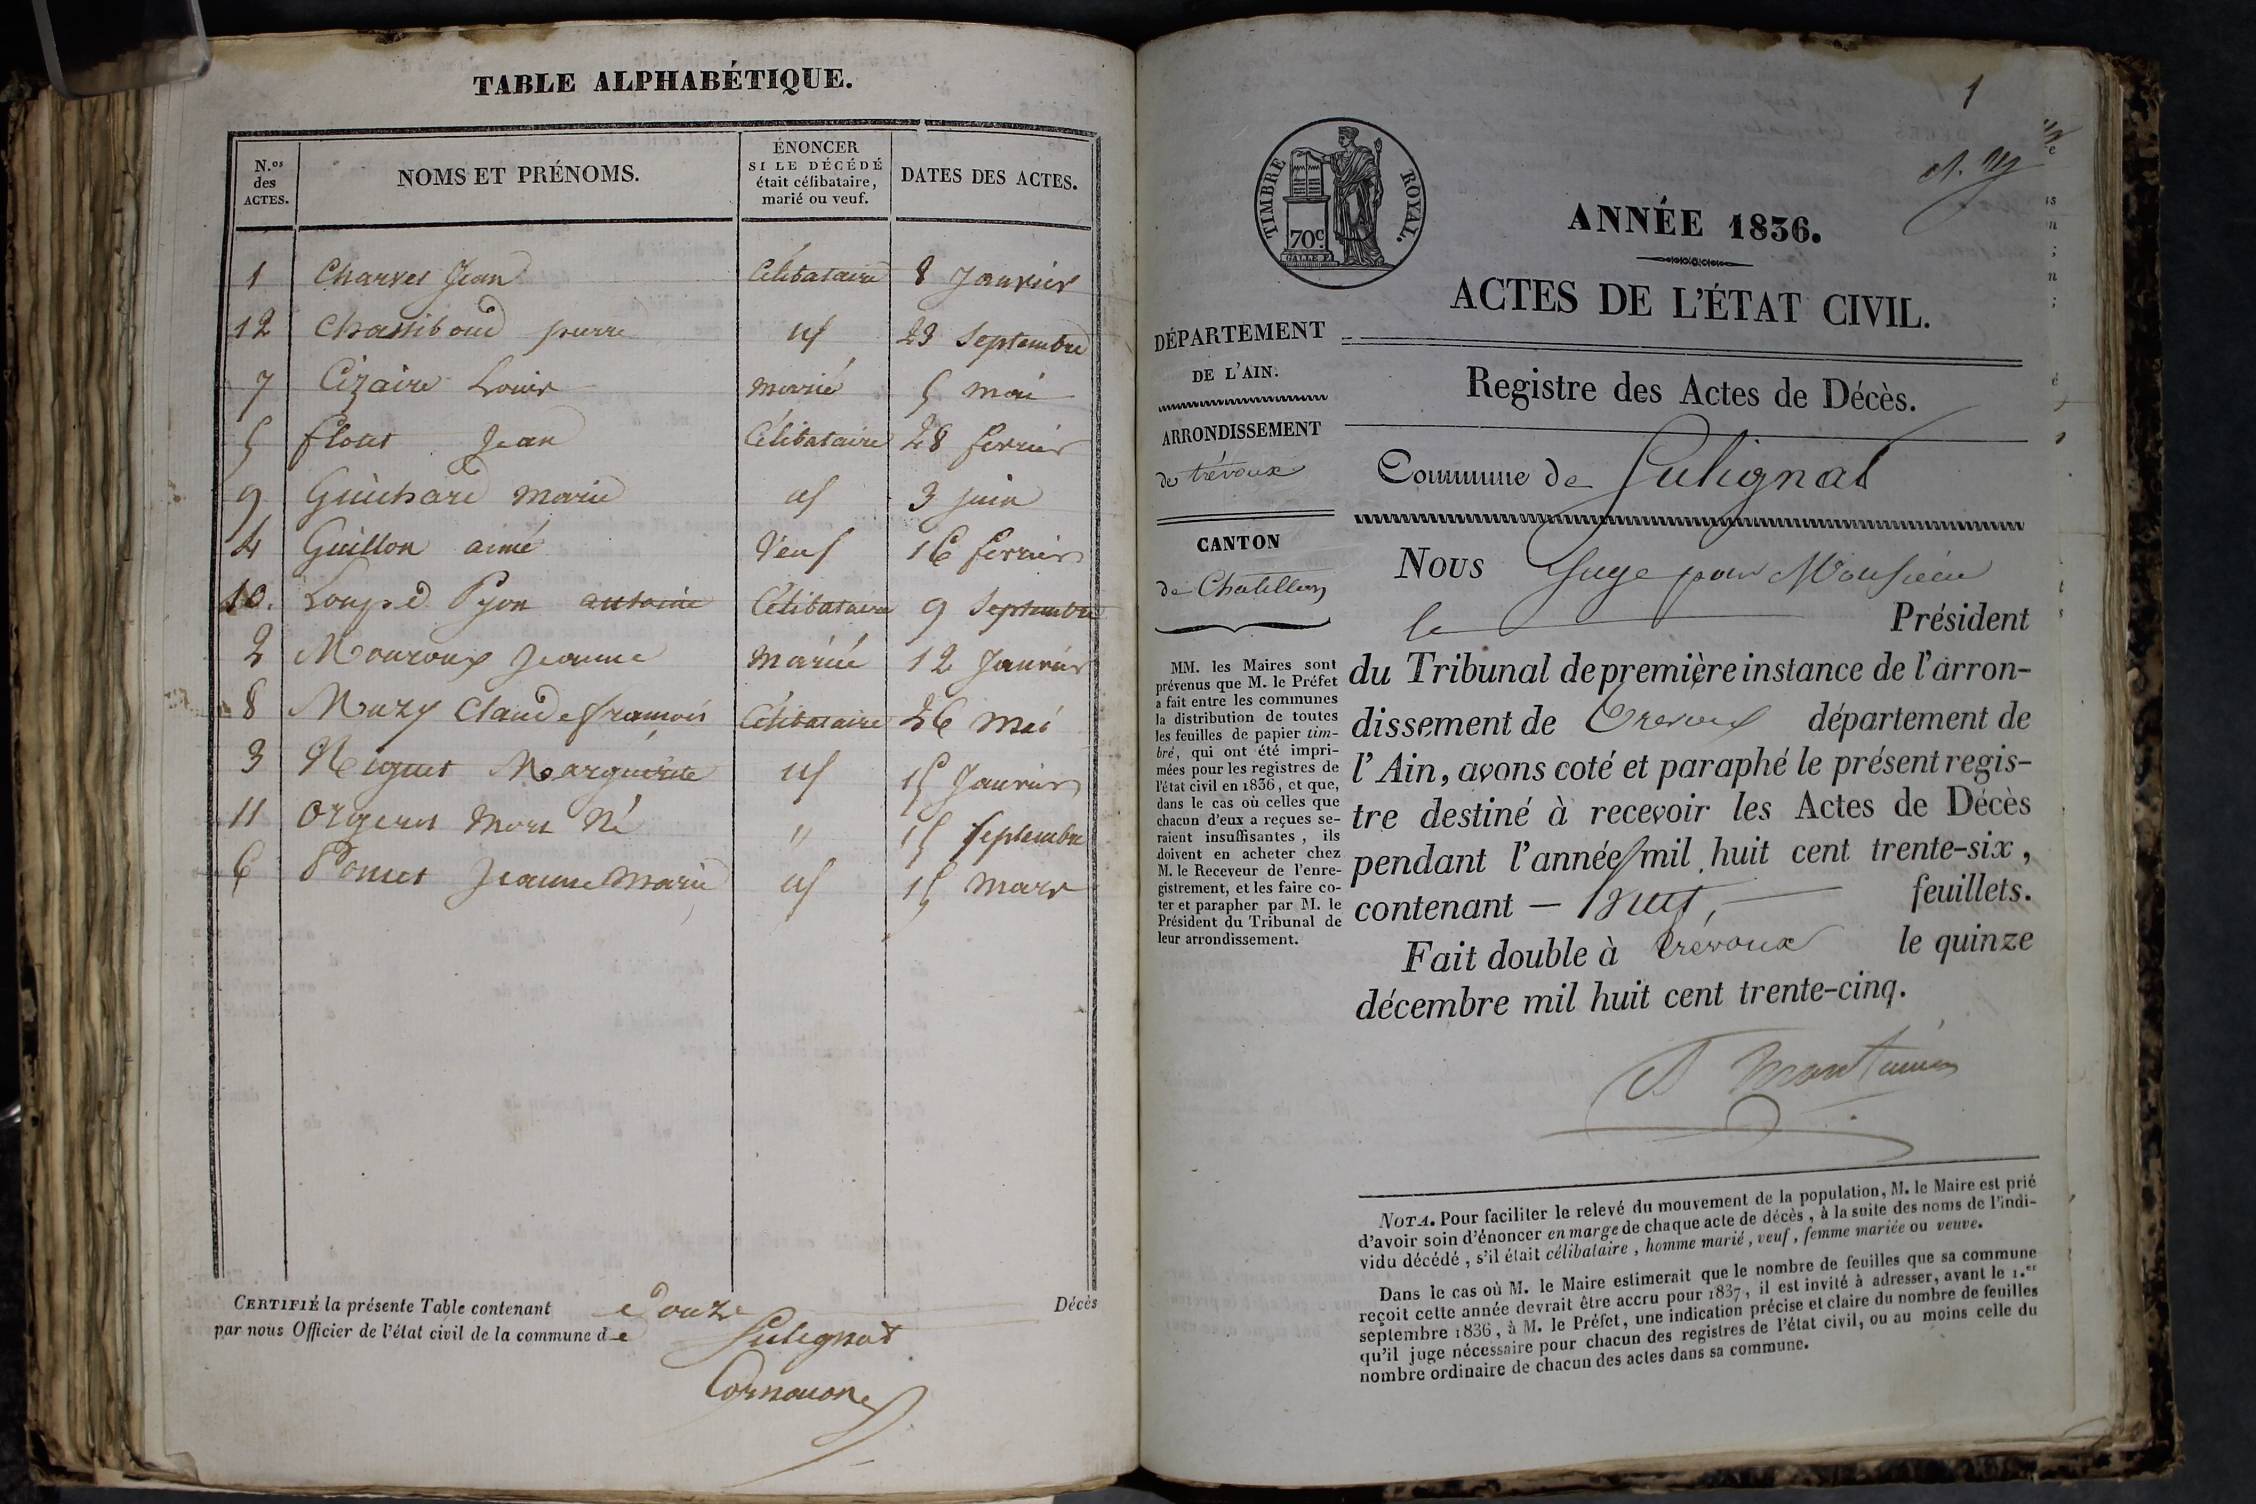 TABLE ALPHABÉTIQUE.
N.os des ACTES.
NOMS ET PRÉNOMS.
ÉNONCER SI LE DÉCÉDÉ était célibataire, marié ou veuf.
DATES DES ACTES.
1 Charvet Jean Célibataire 8 Janvier
12 Chassiboud pierre id 23 Septembre
7 Cizaire Louis marié 5 mai
5 flout Jean Célibataire 28 fevrier
9 Guichard marie id 3 juin
4 Guillon aimé Veuf 16 fevrier
10. Loup d Pyon antoine Célibataire 9 Septembre
2 Mouroux Jeanne Mariée 12 Janvier
8 Muzy Claude françois Célibataire 26 Mai
3 Niguet Marguerite id 15 Janvier
11 Orgeret Mort Né " 15 septembre
6 Poncet Jeanne Marie id 15 Mars
CERTIFIÉ la présente Table contenant douze Décès
par nous Officier de l'état civil de la commune de Sulignat
1
TIMBRE ROYAL.
70c
ANNÉE 1836.
ACTES DE L'ÉTAT CIVIL.
DÉPARTEMENT
DE L'AIN.
ARRONDISSEMENT
de trévoux
CANTON
de Chatillon
MM. les Maires sont
prévenus que M. le Préfet
a fait entre les communes
la distribution de toutes
les feuilles de papier tim-
bré, qui ont été impri-
mées pour les registres de
l'état civil en 1836, et que,
dans le cas où celles que
chacun d'eux a reçues se-
raient insuffisantes, ils
doivent en acheter chez
M. le Receveur de l'enre-
gistrement, et les faire co-
ter et parapher par M. le
Président du Tribunal de
leur arrondissement.
Registre des Actes de Décès.
Commune de Sulignat
Nous Juge pour Monsieur
le Président
du Tribunal de première instance de l'arron-
dissement de Trevoux département de
l'Ain, avons coté et paraphé le présent regis-
tre destiné à recevoir les Actes de Décès
pendant l'année mil huit cent trente-six,
contenant — huit, — feuillets.
Fait double à trévoux le quinze
décembre mil huit cent trente-cinq.
NOTA. Pour faciliter le relevé du mouvement de la population, M. le Maire est prié
d'avoir soin d'énoncer en marge de chaque acte de décès, à la suite des noms de l'indi-
vidu décédé, s'il était célibataire, homme marié, veuf, femme mariée ou veuve.
Dans le cas où M. le Maire estimerait que le nombre de feuilles que sa commune
reçoit cette année devrait être accru pour 1837, il est invité à adresser, avant le 1.er
septembre 1836, à M. le Préfet, une indication précise et claire du nombre de feuilles
qu'il juge nécessaire pour chacun des registres de l'état civil, ou au moins celle du
nombre ordinaire de chacun des actes dans sa commune.